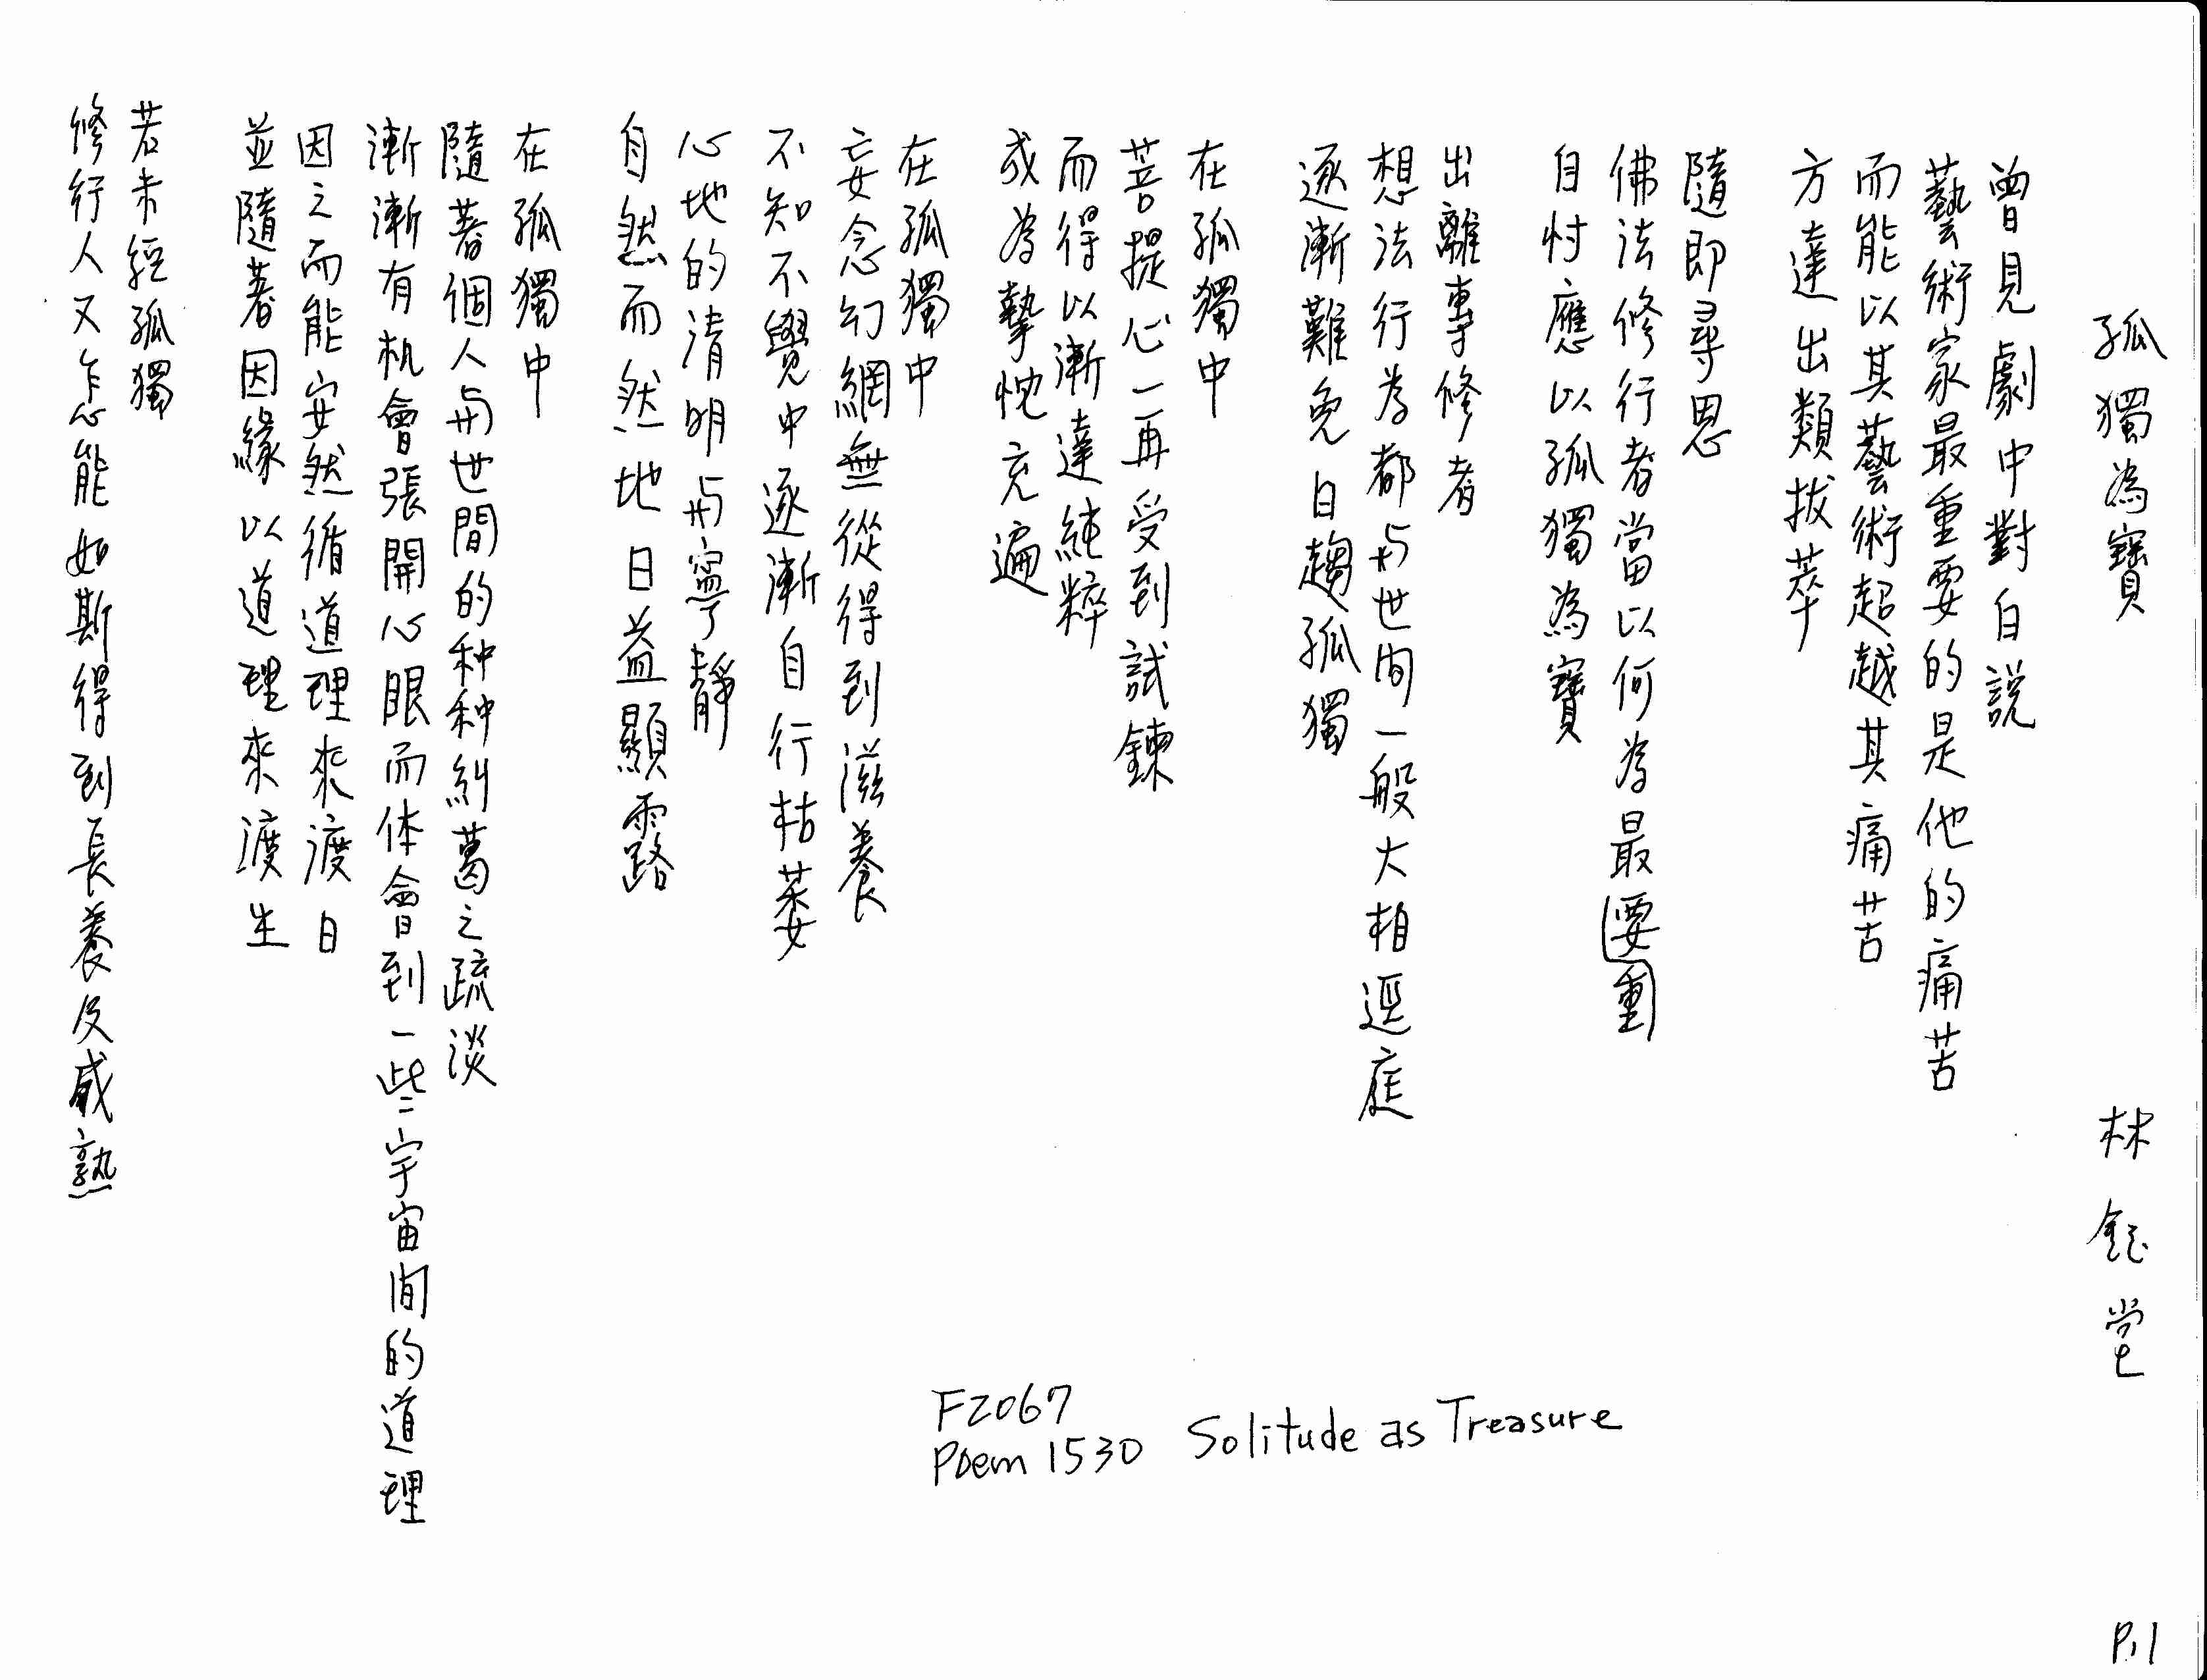 孤獨為寶 林鈺堂
曾見劇中對白說
藝術家最重要的是他的痛苦
而能以其藝術超越其痛苦
方達出類拔萃
隨即尋思
佛法修行者當以何為最要重
自忖應以孤獨為寶
出離專修者
想法行為都与世间一般大相逕庭
逐漸難免自趨孤獨
在孤獨中
菩提心一再受到試鍊
而得以漸達純粹
成為摯忱充遍
在孤獨中
妄念幻網無從得到滋養
不知不覺中逐漸自行枯萎
心地的清明与寧靜
自然而然地日益顯露
在孤獨中
隨著個人与世間的种种糾葛之疏淡
漸漸有机會張開心眼而体會到一些宇宙间的道理
因之而能安然循道理來渡日
並隨著因緣以道理來渡生
若未經孤獨
修行人又怎能如斯得到長養及成熟
F2067
Poem 1530 Solitude as Treasure
P.1